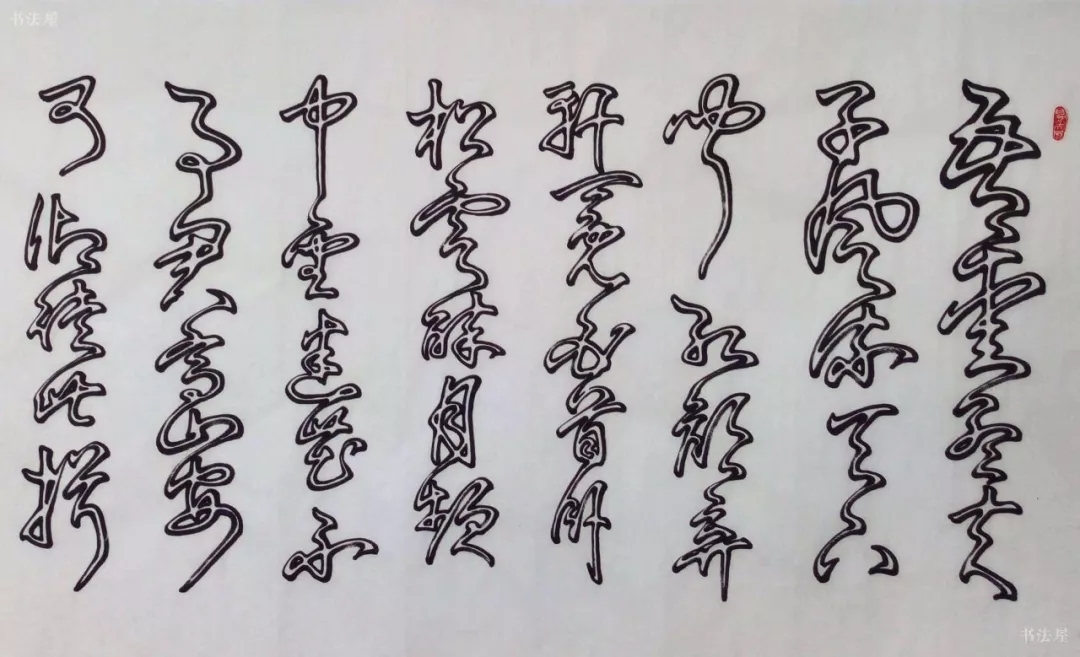 吾爱孟夫
子风流天下
闻红颜弃
轩冕白首卧
松云醉月频
中圣迷花不
事君高山安
可仰徒此揖
书法屋
书法屋